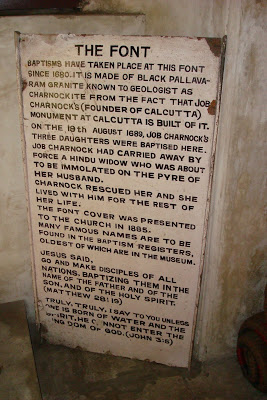 THE FONT
BAPTISMS HAVE TAKEN PLACE AT THIS FONT
SINCE 1680. IT IS MADE OF BLACK PALLAVA-
RAM GRANITE KNOWN TO GEOLOGIST AS
CHARNOCKITE FROM THE FACT THAT JOB
CHARNOCK'S (FOUNDER OF CALCUTTA)
MONUMENT AT CALCUTTA IS BUILT OF IT.
ON THE 19th AUGUST 1689, JOB CHARNOCK'S
THREE DAUGHTERS WERE BAPTISED HERE.
JOB CHARNOCK HAD CARRIED AWAY BY
FORCE A HINDU WIDOW WHO WAS ABOUT
TO BE IMMOLATED ON THE PYRE OF
HER HUSBAND.
CHARNOCK RESCUED HER AND SHE
LIVED WITH HIM FOR THE REST OF
HER LIFE.
THE FONT COVER WAS PRESENTED
TO THE CHURCH IN 1885.
MANY FAMOUS NAMES ARE TO BE
FOUND IN THE BAPTISM REGISTERS,
OLDEST OF WHICH ARE IN THE MUSEUM.
JESUS SAID,
GO AND MAKE DISCIPLES OF ALL
NATIONS, BAPTIZING THEM IN THE
NAME OF THE FATHER AND OF THE
SON, AND OF THE HOLY SPIRIT.
(MATTHEW 28:19)
TRULY, TRULY, I SAY TO YOU UNLESS
ONE IS BORN OF WATER AND THE
SPIRIT, HE CANNOT ENTER THE
KINGDOM OF GOD. (JOHN 3:5)